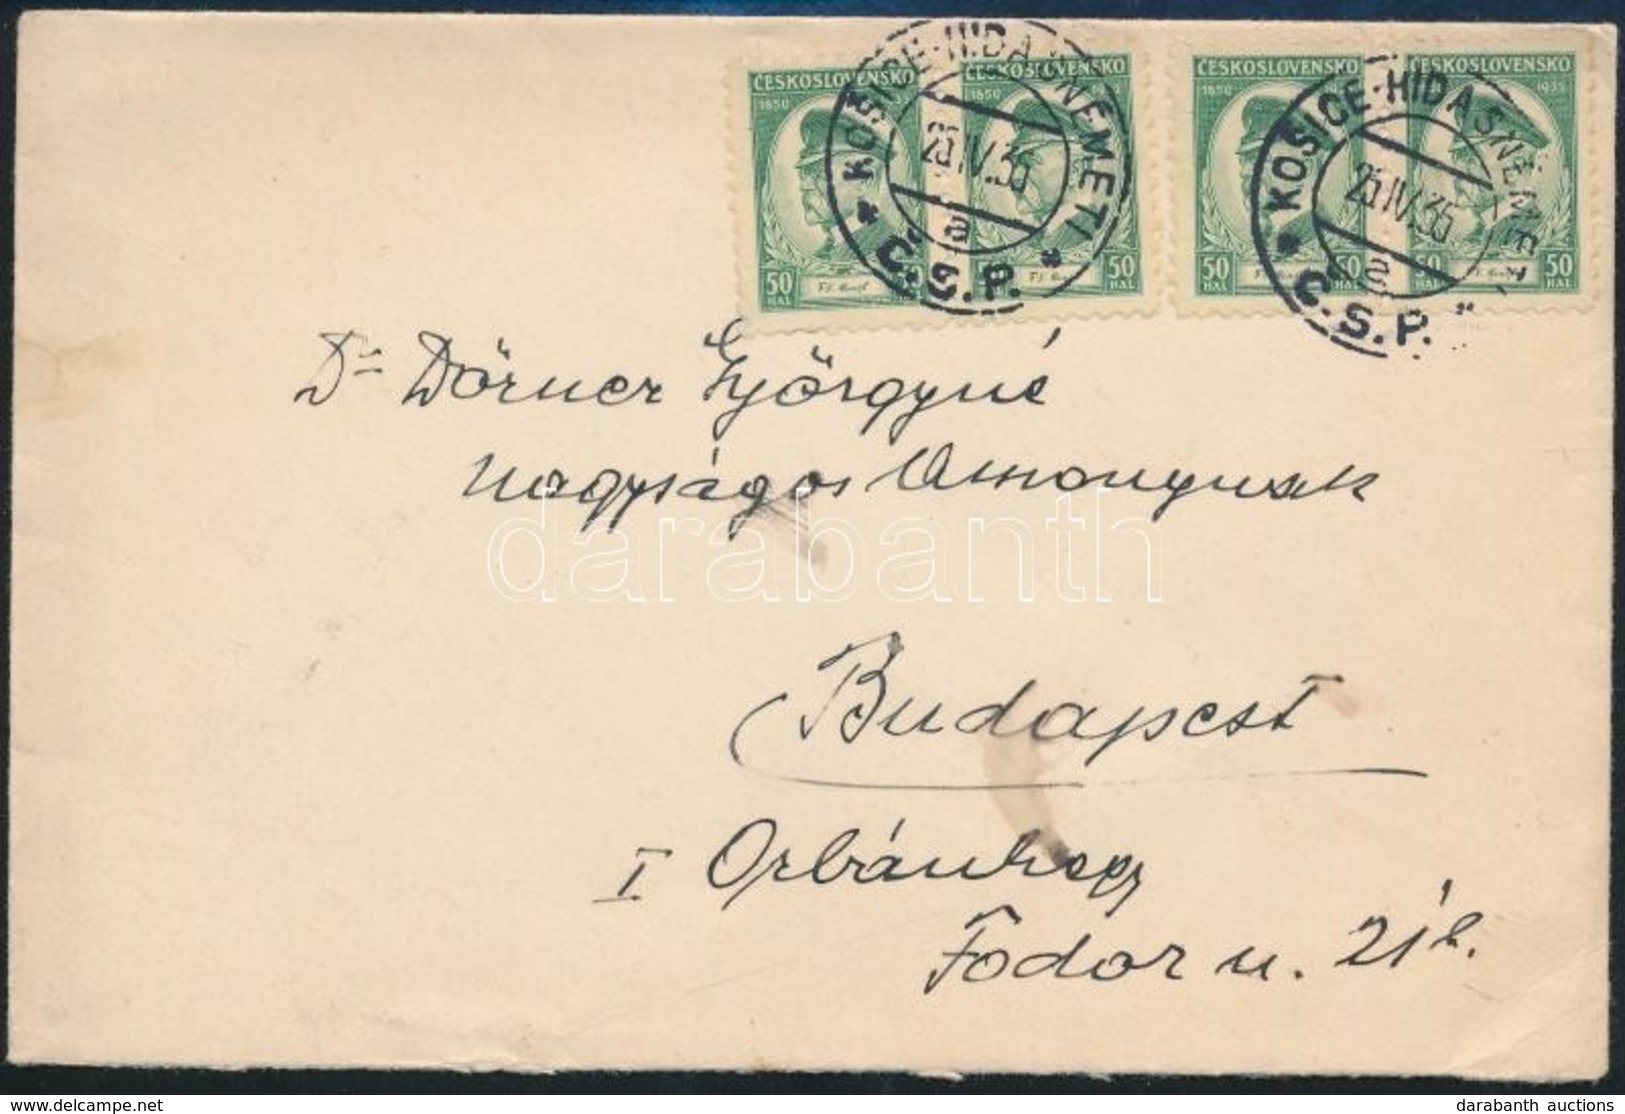 ČESKOSLOVENSKO ČESKOSLOVENSKO ČESKOSLOVENSKO ČESKOSLOVENSKO
1850 1935 1850 1935
KOŠICE-HIDASNEMETI KOŠICE-HIDASNEMETI
25.IV.35 25.IV.35
a a
50 HAL 50 HAL 50 HAL 50 50 HAL
Č.S.P. Č.S.P.
Dr Dörner Györgyné
nagyságos Asszonynak
darabanth
Budapest
I Orbánhegy
Fodor u. 21
delcampe.net
darabanth auctions